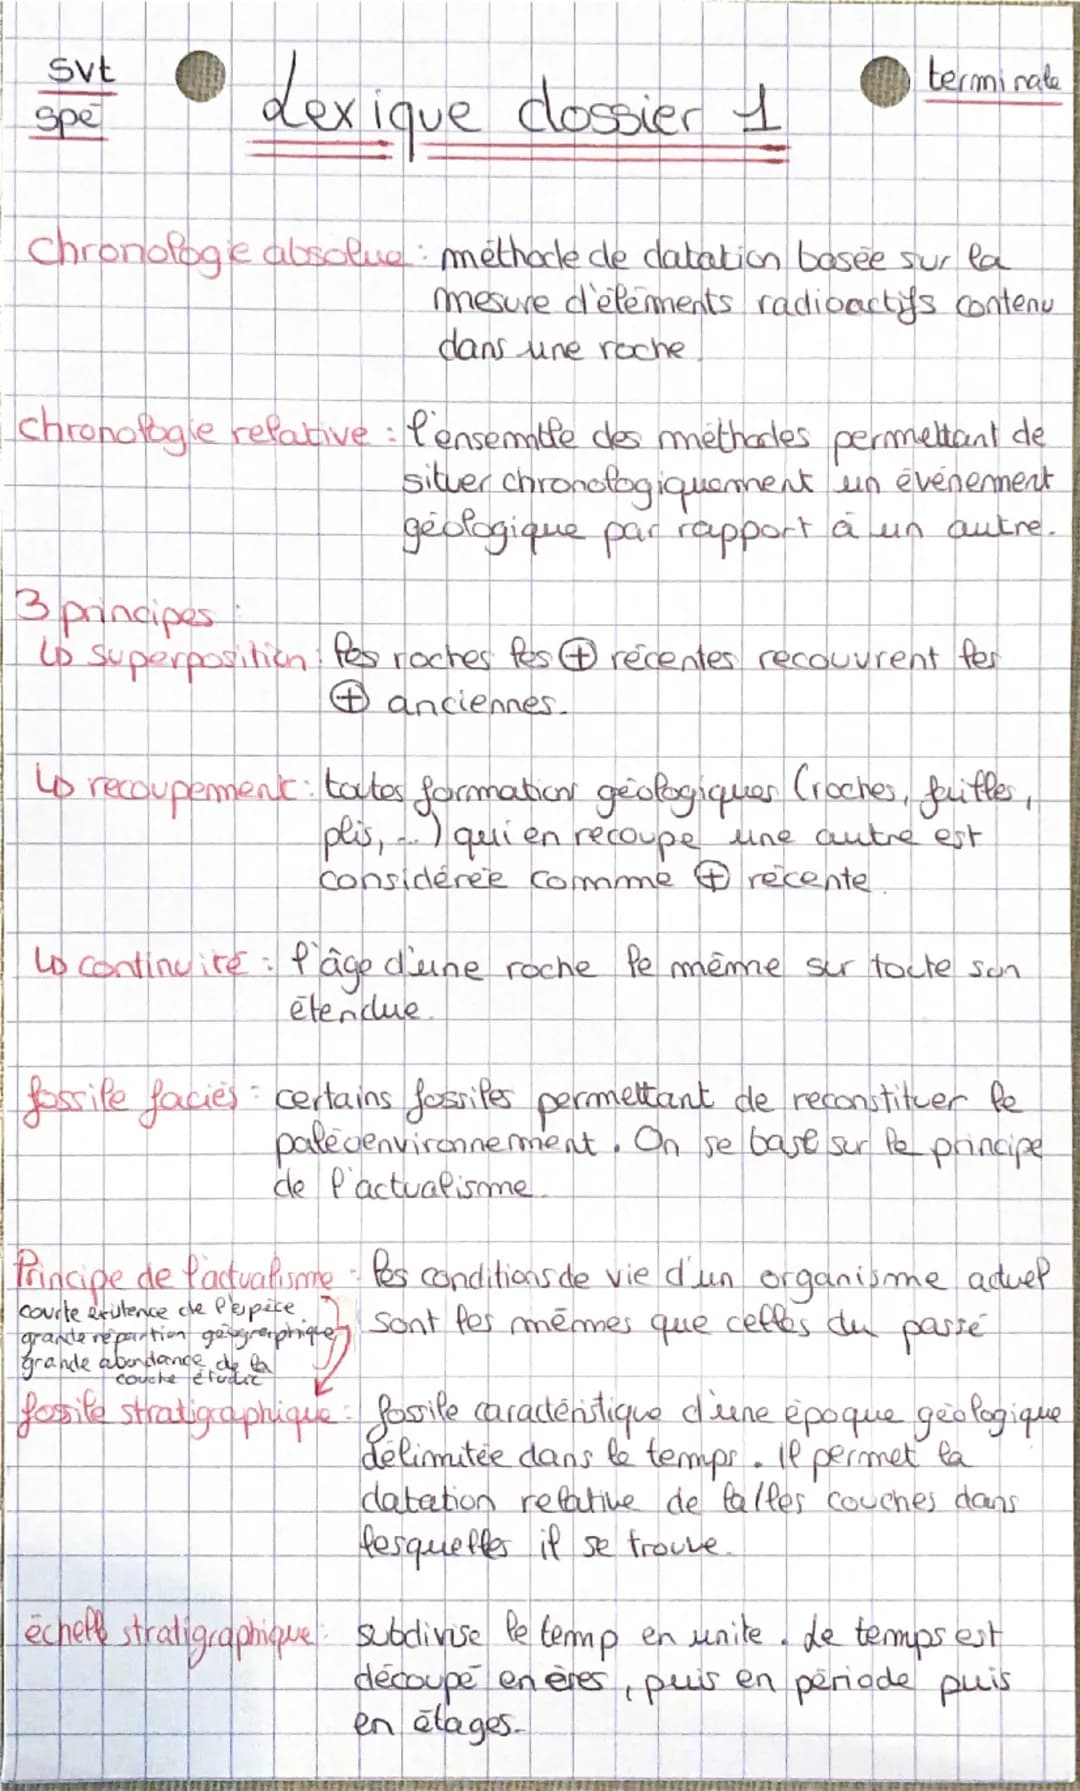 svt
spé
Lexique dossier 1
terminale
chronologie absolue : méthode de datation basée sur la
mesure d'éléments radioactifs contenu
dans une roche.
chronologie relative : l'ensemble des méthodes permettant de
situer chronologiquement un événement
géologique par rapport à un autre.
3 principes :
↳ superposition : les roches les ⊕ récentes recouvrent les
⊕ anciennes.
↳ recoupement : toutes formation géologiques (roches, failles,
plis, ...) qui en recoupe une autre est
considérée comme ⊕ récente.
↳ continuité : l'âge d'une roche le même sur toute son
étendue.
fossile faciès : certains fossiles permettant de reconstituer le
paléoenvironnement. On se base sur le principe
de l'actualisme.
Principe de l'actualisme : les conditions de vie d'un organisme actuel
sont les mêmes que celles du passé
courte de l'espèce
grande répartion géographique
grande abondance de la
couche étudié
fossile stratigraphique : fossile caractéristique d'une époque géologique
délimitée dans le temps. Il permet la
datation relative de la/les couches dans
lesquelles il se trouve.
échelle stratigraphique : subdivise le temp en unite. Le temps est
découpé en ères, puis en période puis
en étages.